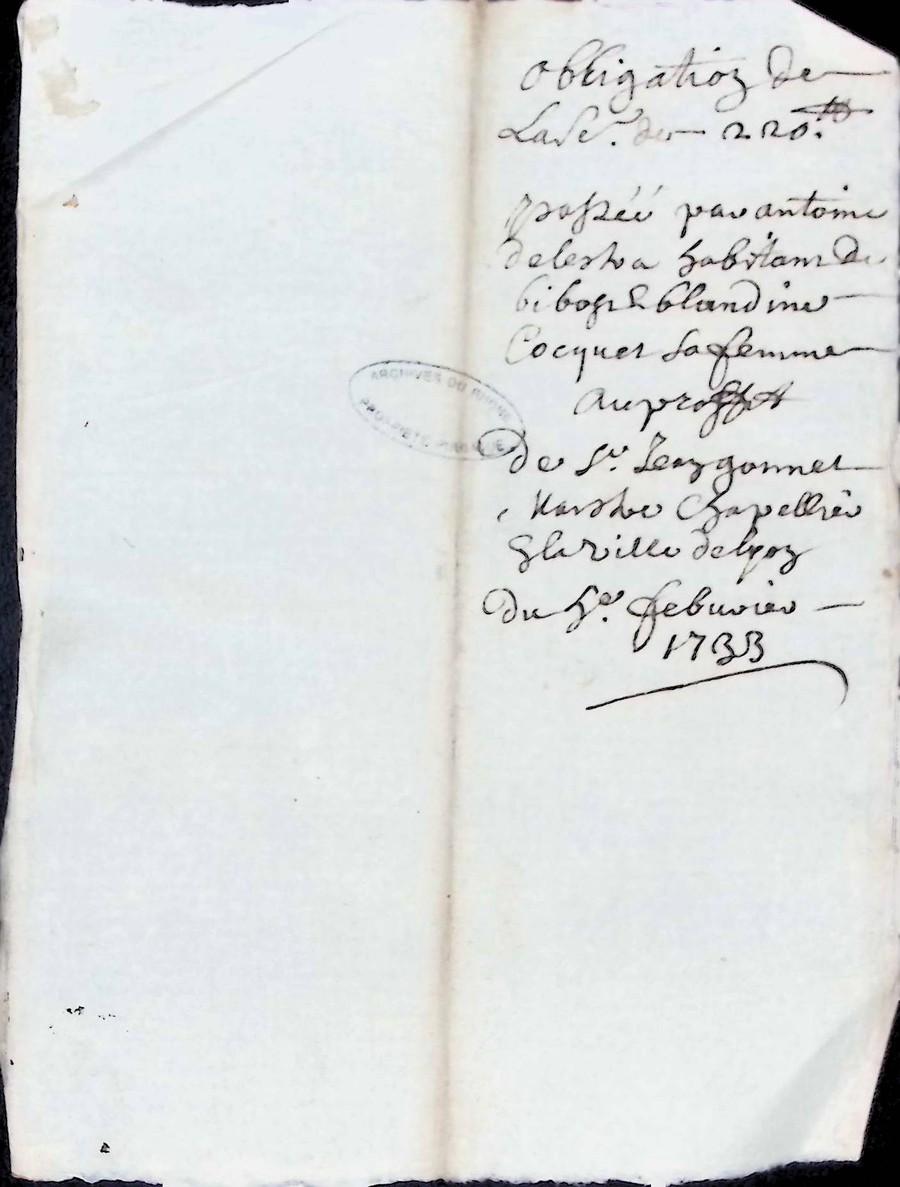 Obligation de
La Se. de 220 ₶
passéé par antoine
delestra habitant de
bibost & blandine
Cocquet sa femme
au proffit
de Sr. Jean gonnet
Maistre Chapellier
& la ville de lyon
Du 4e. febuvier
1733
ARCHIVES DU RHONE
PROPRIETE PUBLIQUE